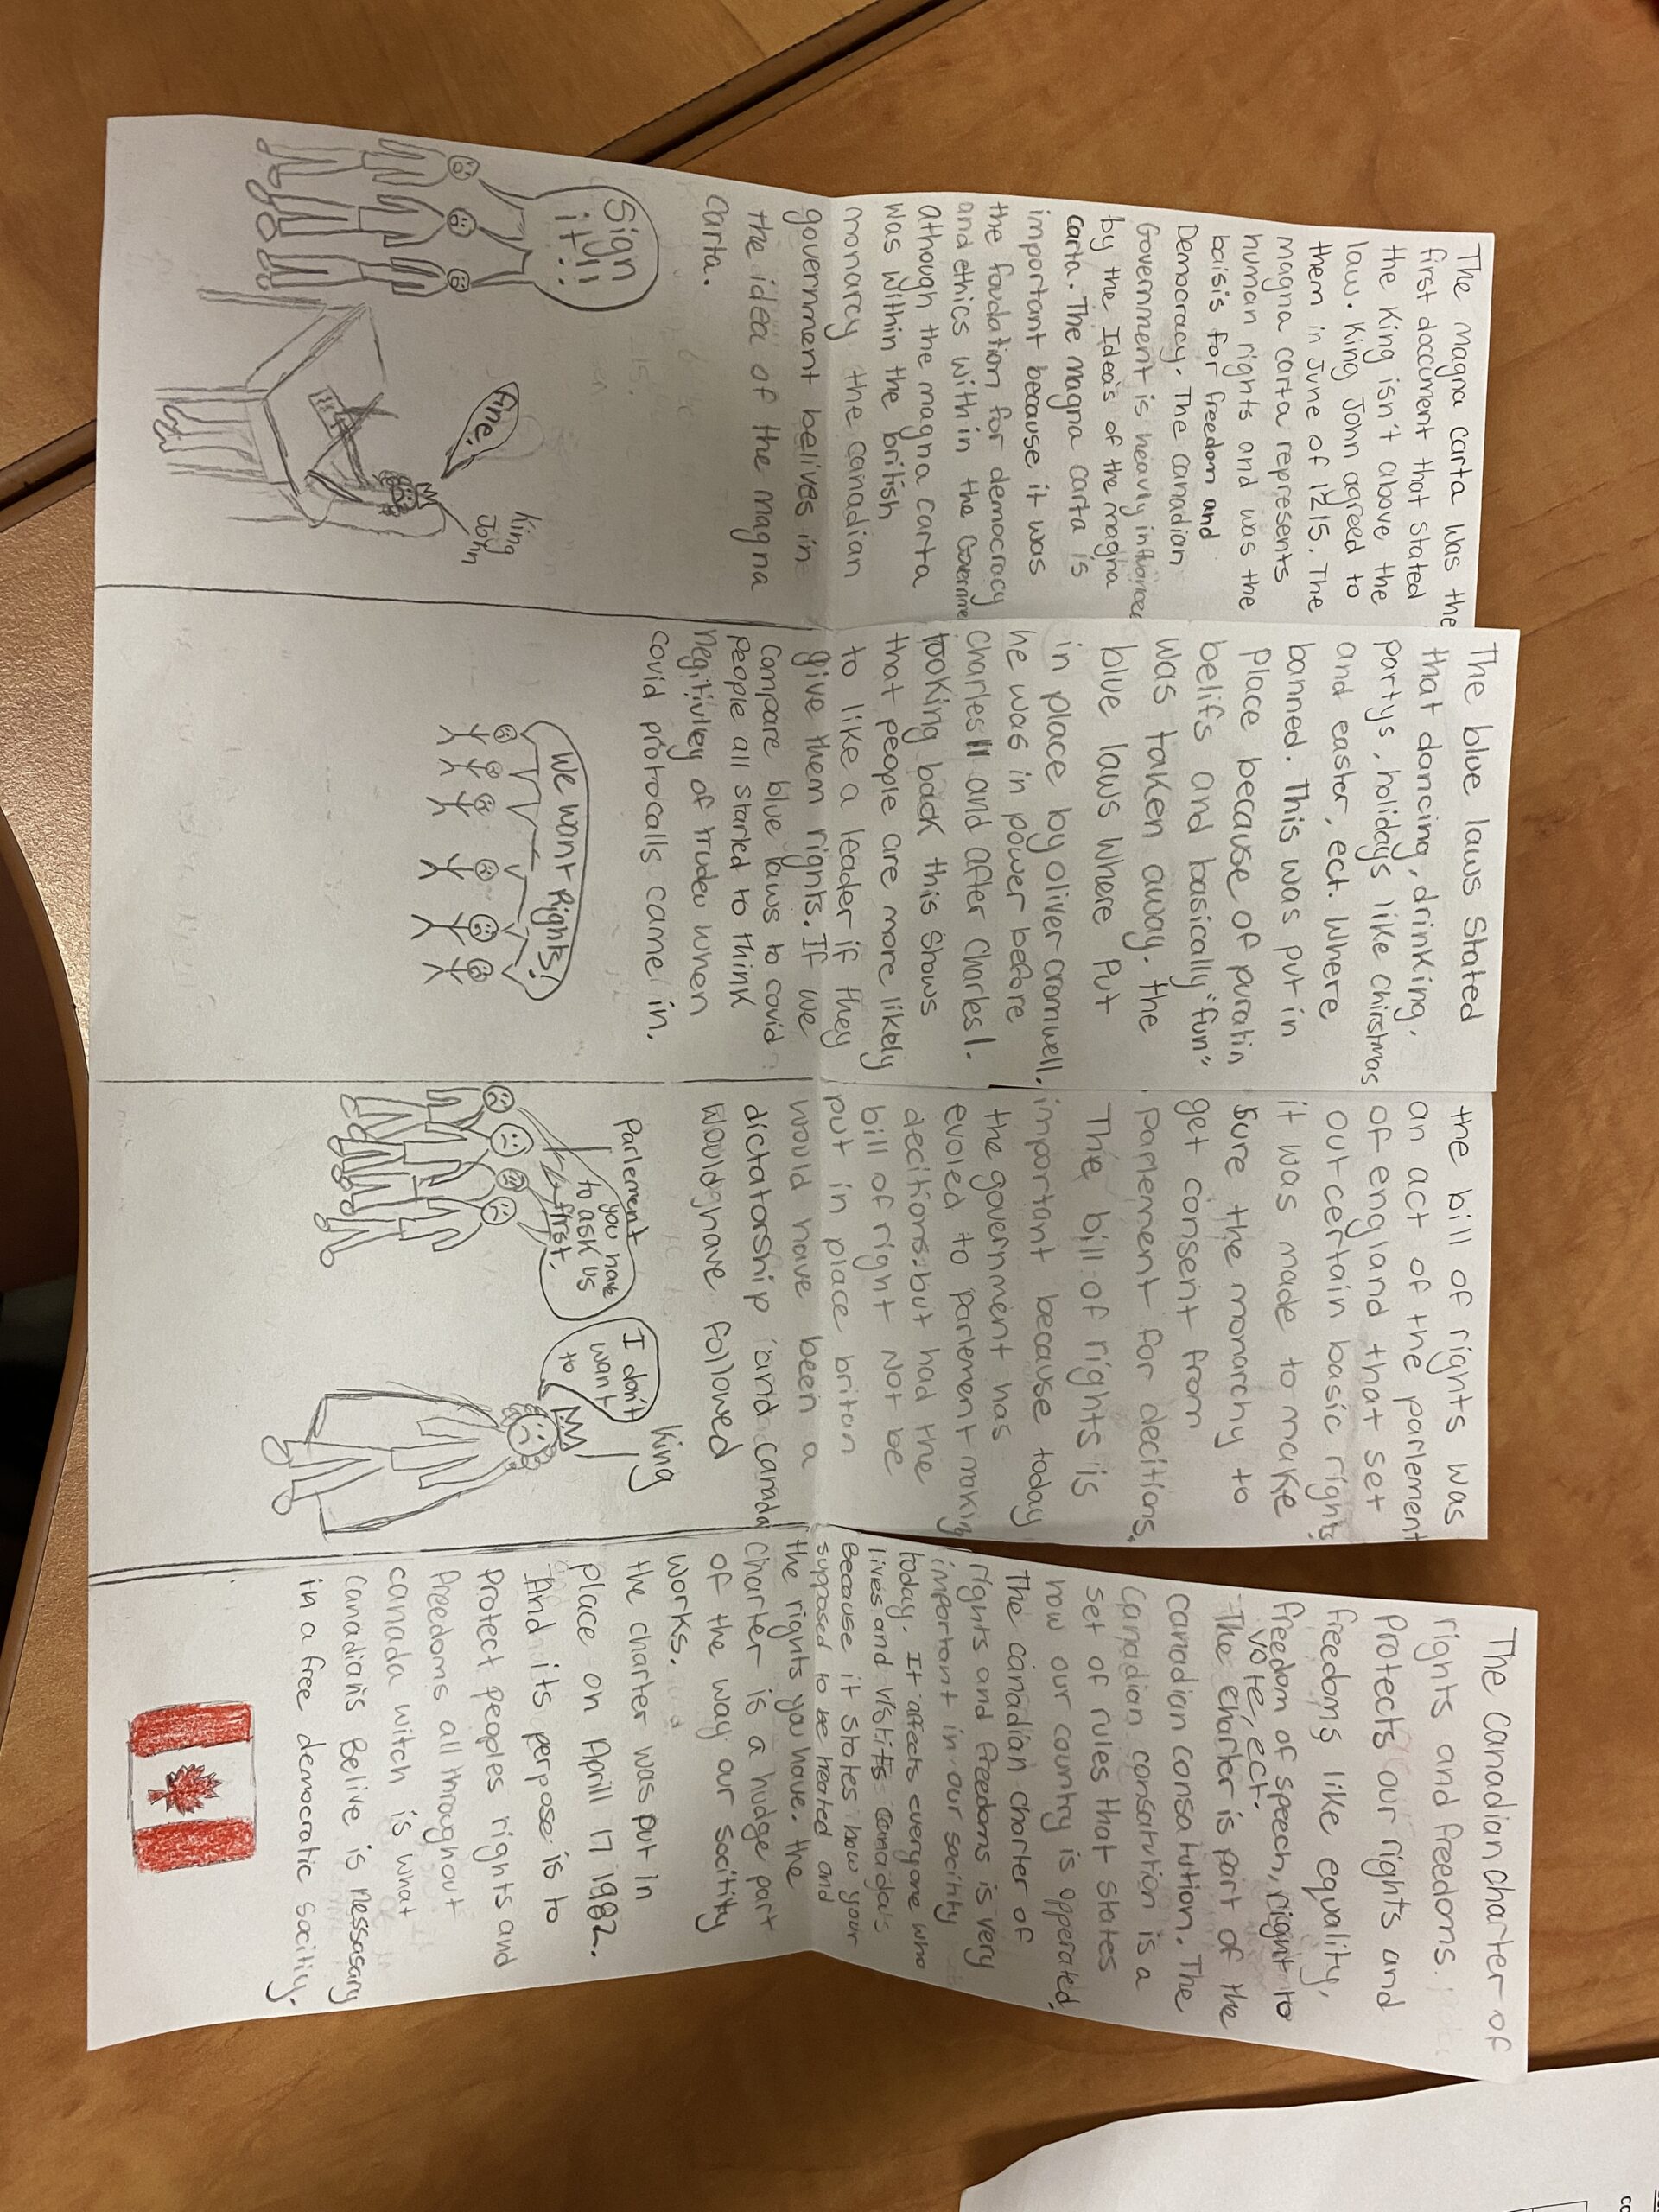 The magna carta was the
first document that stated
the King isn't above the
law. King John agreed to
them in June of 1215. The
magna carta represents
human rights and was the
baisis for freedom and
Democracy. The canadian
Government is heavily influanced
by the Idea's of the magna
carta. The magna carta is
important because it was
the foudation for democracy
and ethics within the Governme
athough the magna carta
was within the british
monarcy the canadian
government belives in
the idea of the magna
carta.
Sign
it!!
Fine!
King
John
The blue laws stated
that dancing, drinking,
partys, holidays like chirstmas
and easter, ect. Where
banned. This was put in
place because of puratin
belifs and basically "fun"
was taken away. the
blue laws where put
in place by oliver cromwell.
he was in power before
CharlesII and after Charles I.
looking back this shows
that people are more likely
to like a leader if they
give them rights. If we
compare blue laws to covid
people all started to think
negitivley of trudeu when
covid protocalls came in.
We want Rights!
the bill of rights was
an act of the parlement
of england that set
out certain basic rights
it was made to make
sure the monarchy to
get consent from
parlement for decitions.
The bill of rights is
important because today
the government has
evoled to parlement making
decitions but had the
bill of right Not be
put in place britan
would have been a
dictatorship and camda
would have followed
Parlement
you have
to ask us
first.
I don't
want
to
King
The canadian charter of
rights and freedoms
Protects our rights and
freedoms like equality,
freedom of speech, right to
vote, ect.
The charter is part of the
canadian consatution. The
Canadian consatution is a
set of rules that states
how our country is opperated.
The canadian charter of
rights and freedoms is very
important in our sacitity
today. It affects everyone who
lives and vistits canada's
Because it states how your
supposed to be treated and
the rights you have. the
Charter is a hudge part
of the way our socitiy
works.
the charter was put in
place on Aprill 17 1982.
And its perpose is to
Protect peoples rights and
freedoms all throughout
canada witch is what
Canadians Belive is nessasary
in a free democratic socitiy.